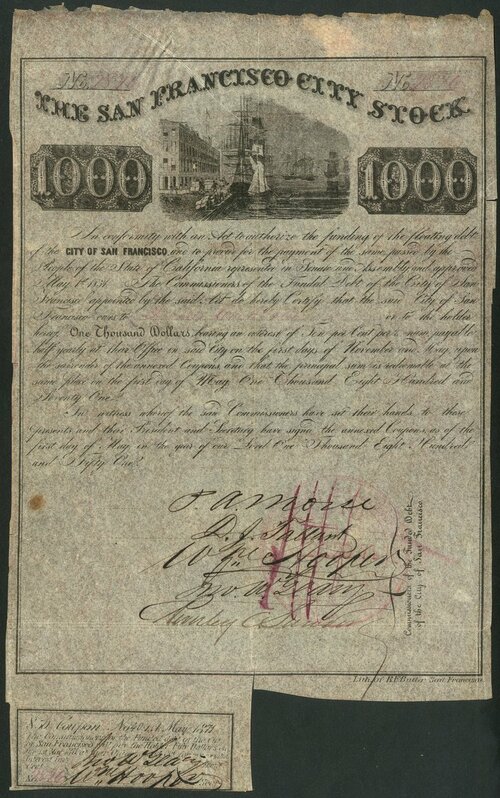 No.
No.
THE SAN FRANCISCO CITY STOCK.
1000
1000
In conformity with an Act to authorize the funding of the floating debt
of the CITY OF SAN FRANCISCO and to provide for the payment of the same, passed by the
People of the State of California represented in Senate and Assembly and approved
May 1st 1851. The Commissioners of the Funded Debt of the City of San
Francisco appointed by the said Act do hereby Certify that the said City of San
Francisco owes to or to the holder
hereof One Thousand Dollars, bearing an interest of Ten per Cent per annum, payable
half yearly at their Office in said City on the first days of November and May, upon
the surrender of the annexed Coupons, and that the principal sum is redeemable at the
same place on the first day of May, One Thousand Eight Hundred and
Seventy One.
In witness whereof the said Commissioners have set their hands to these
presents and their President and Secretary have signed the annexed Coupons, as of the
first day of May in the year of our Lord One Thousand Eight Hundred
and Fifty One.
P. A. Morse
D. J. Tallant
Wm Hooper
Commissioners of the Funded Debt
of the City of San Francisco
Lith. of B.F. Butler San Francisco
Coupon No. 40 1st May 1871
Wm Hooper